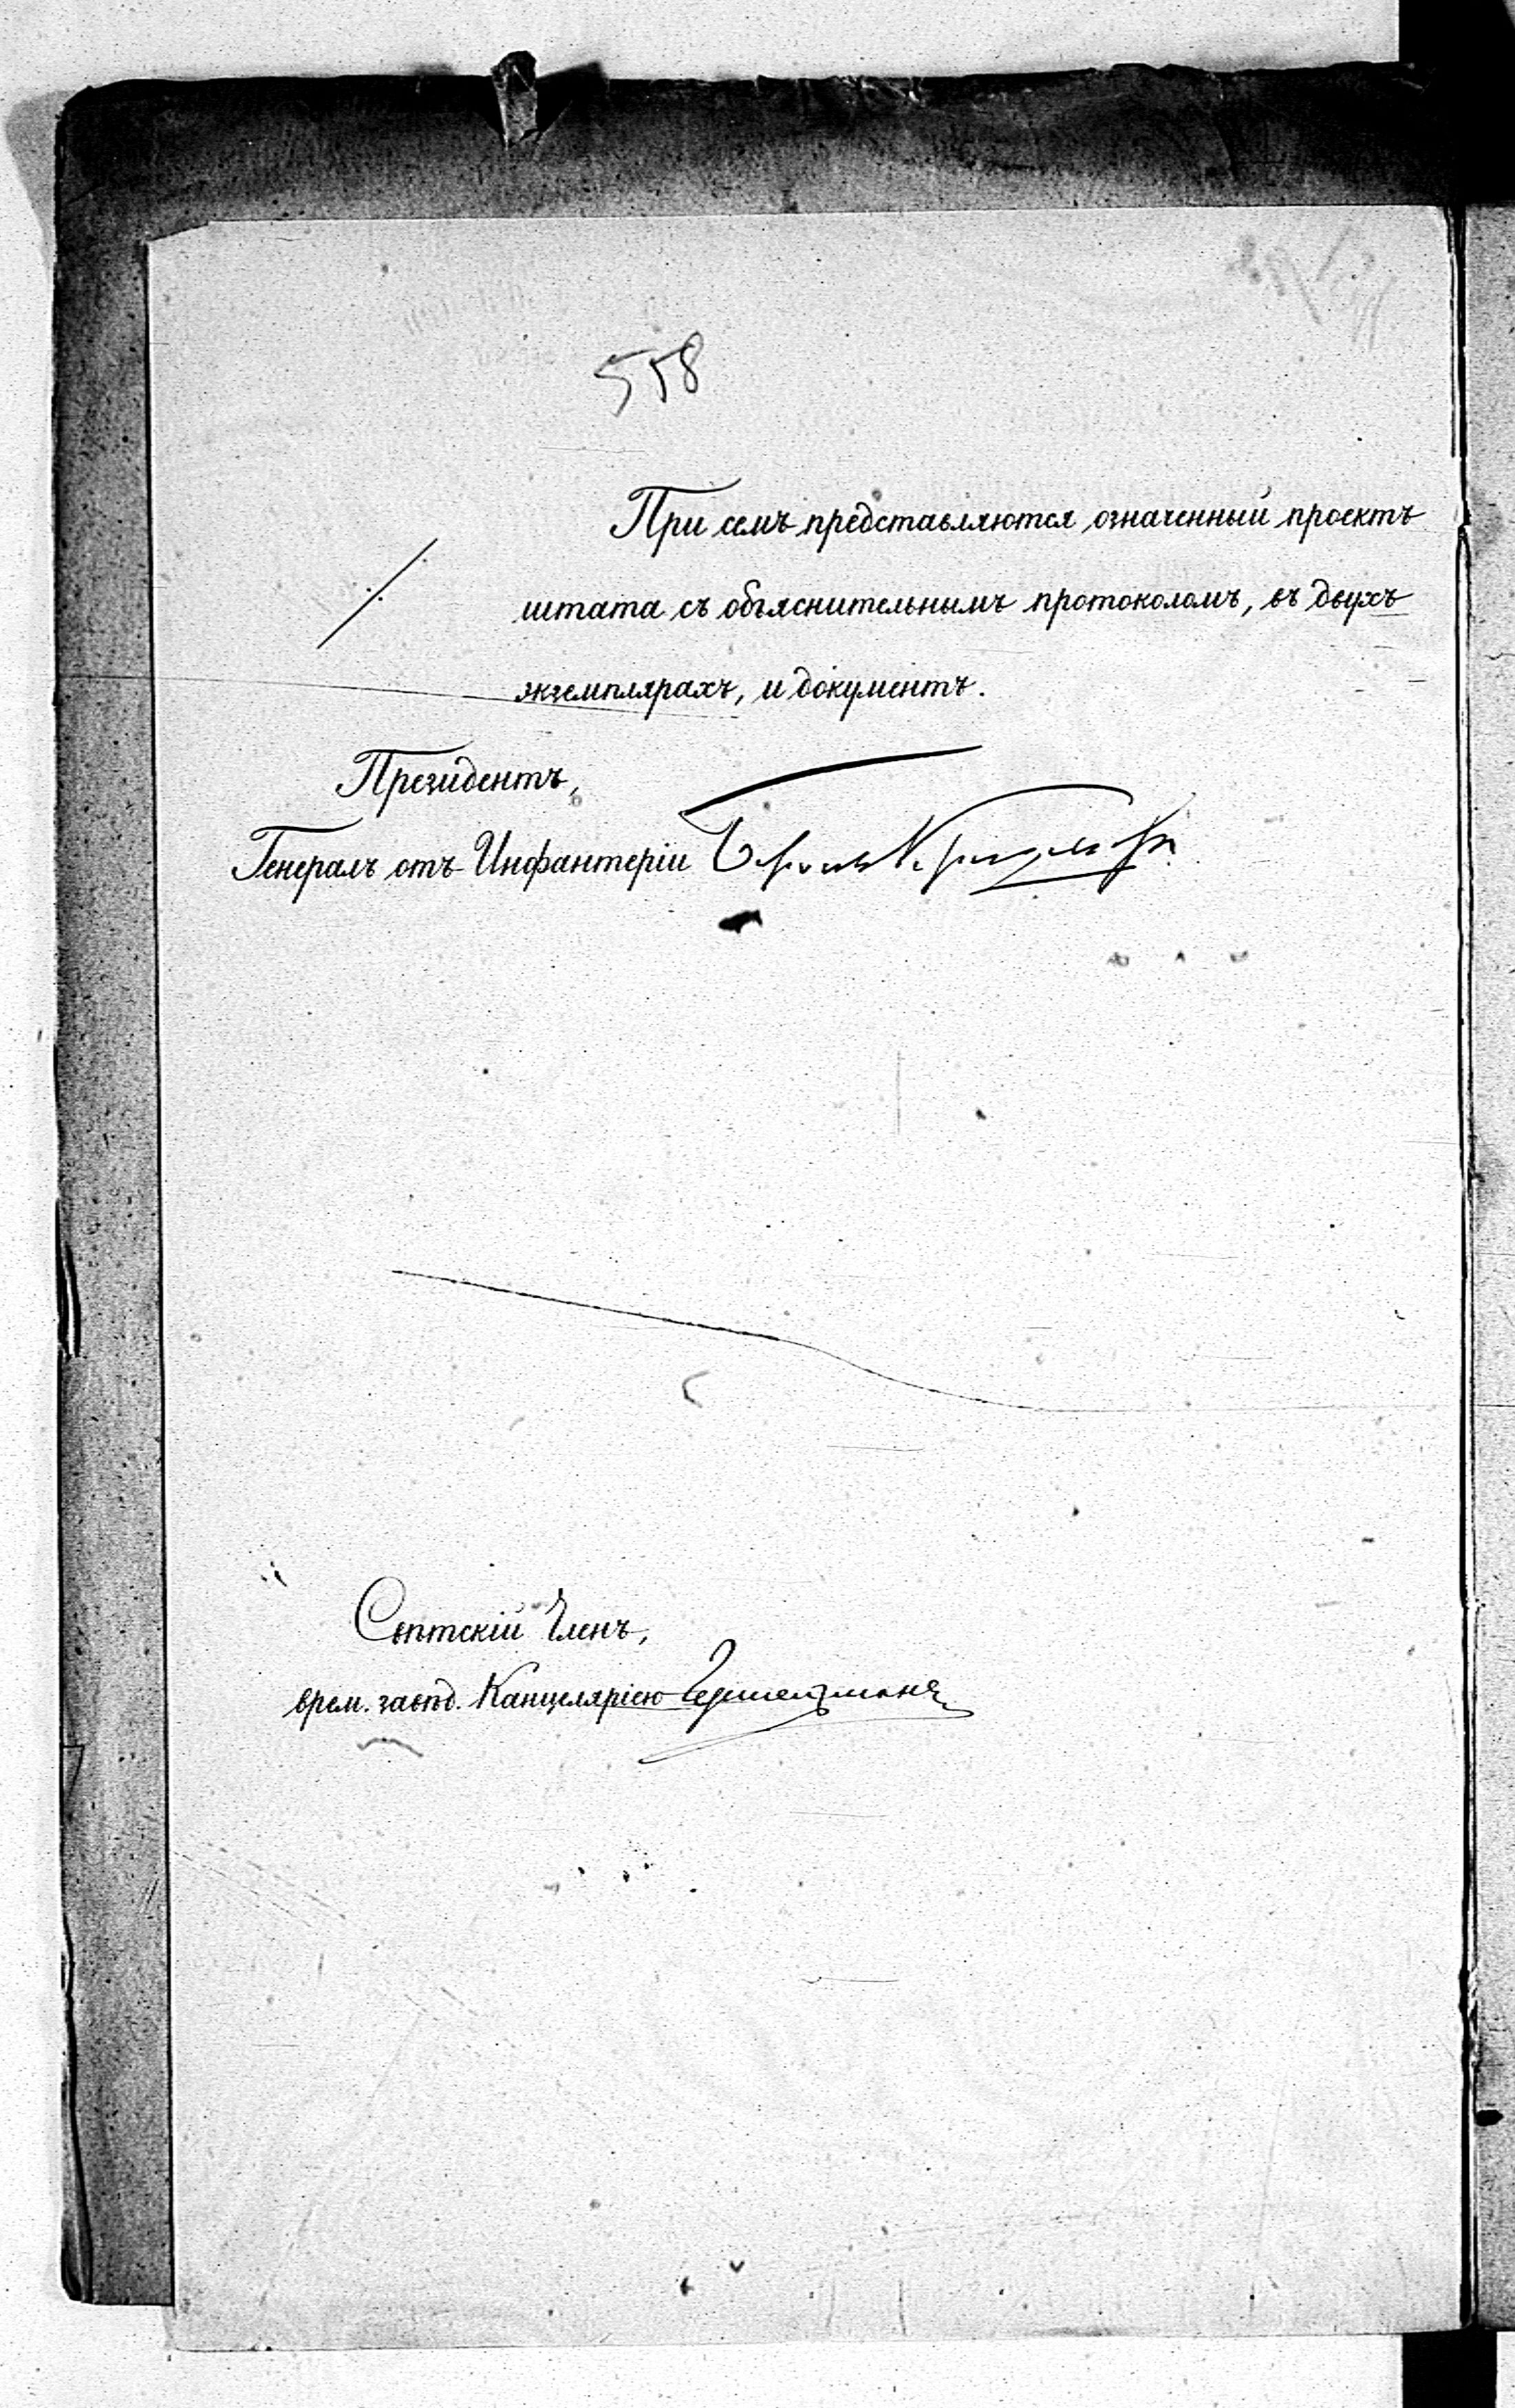 558
При семъ представляются означенный проектъ
штата съ объяснительнымъ протоколомъ, въ двухъ
экземплярахъ, и документъ.
Президентъ,
Генералъ отъ Инфантеріи
Совѣтскій Членъ,
врем. завѣд. Канцеляріею